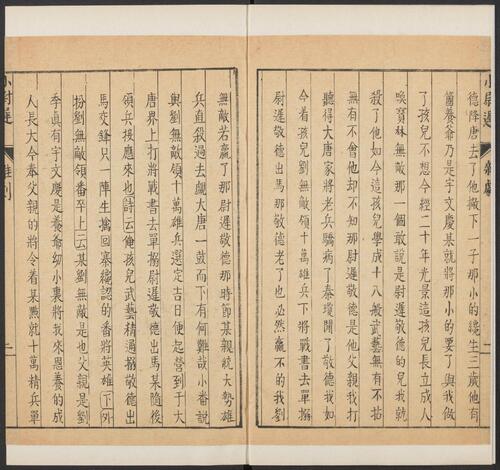 德降唐去了他撇下一子那小的纔生三歲他有
箇養爺乃是宇文慶某就將那小的要了與我做
了孩兒不想今經二十年光景這孩兒長立成人
喚寶林無敵那一個敢說是尉遲敬德的兒我就
殺了他如今這孩兒學成十八般武藝無有不拈
無有不會他却不知那尉遲敬德是他父親我打
聽得大唐家將老兵驕病了秦瓊閒了敬德我如
今着劉無敵領十萬雄兵下將戰書去單搦
尉遲敬德出馬那敬德老了也必然贏不的我劉
無敵若贏了那尉遲敬德那時節某親統大勢雄
兵直殺過去覷大唐一鼓而下有何難哉小番說
與劉無敵領十萬雄兵選定吉日便起營到于大
唐界上打將戰書去單搦尉遲敬德出馬某隨後
領兵接應來也詩云俺孩兒武藝精通搦敬德出
馬交鋒只一陣生擒回寨纔認的番將英雄下外
扮劉無敵領番卒上云某劉無敵是也父親是劉
季真有宇文慶是養爺幼小裏將我來恩養的成
人長大今奉父親的將令着某㸃就十萬精兵單
小尉遲
雜劇
一
小尉遲
雜劇
二